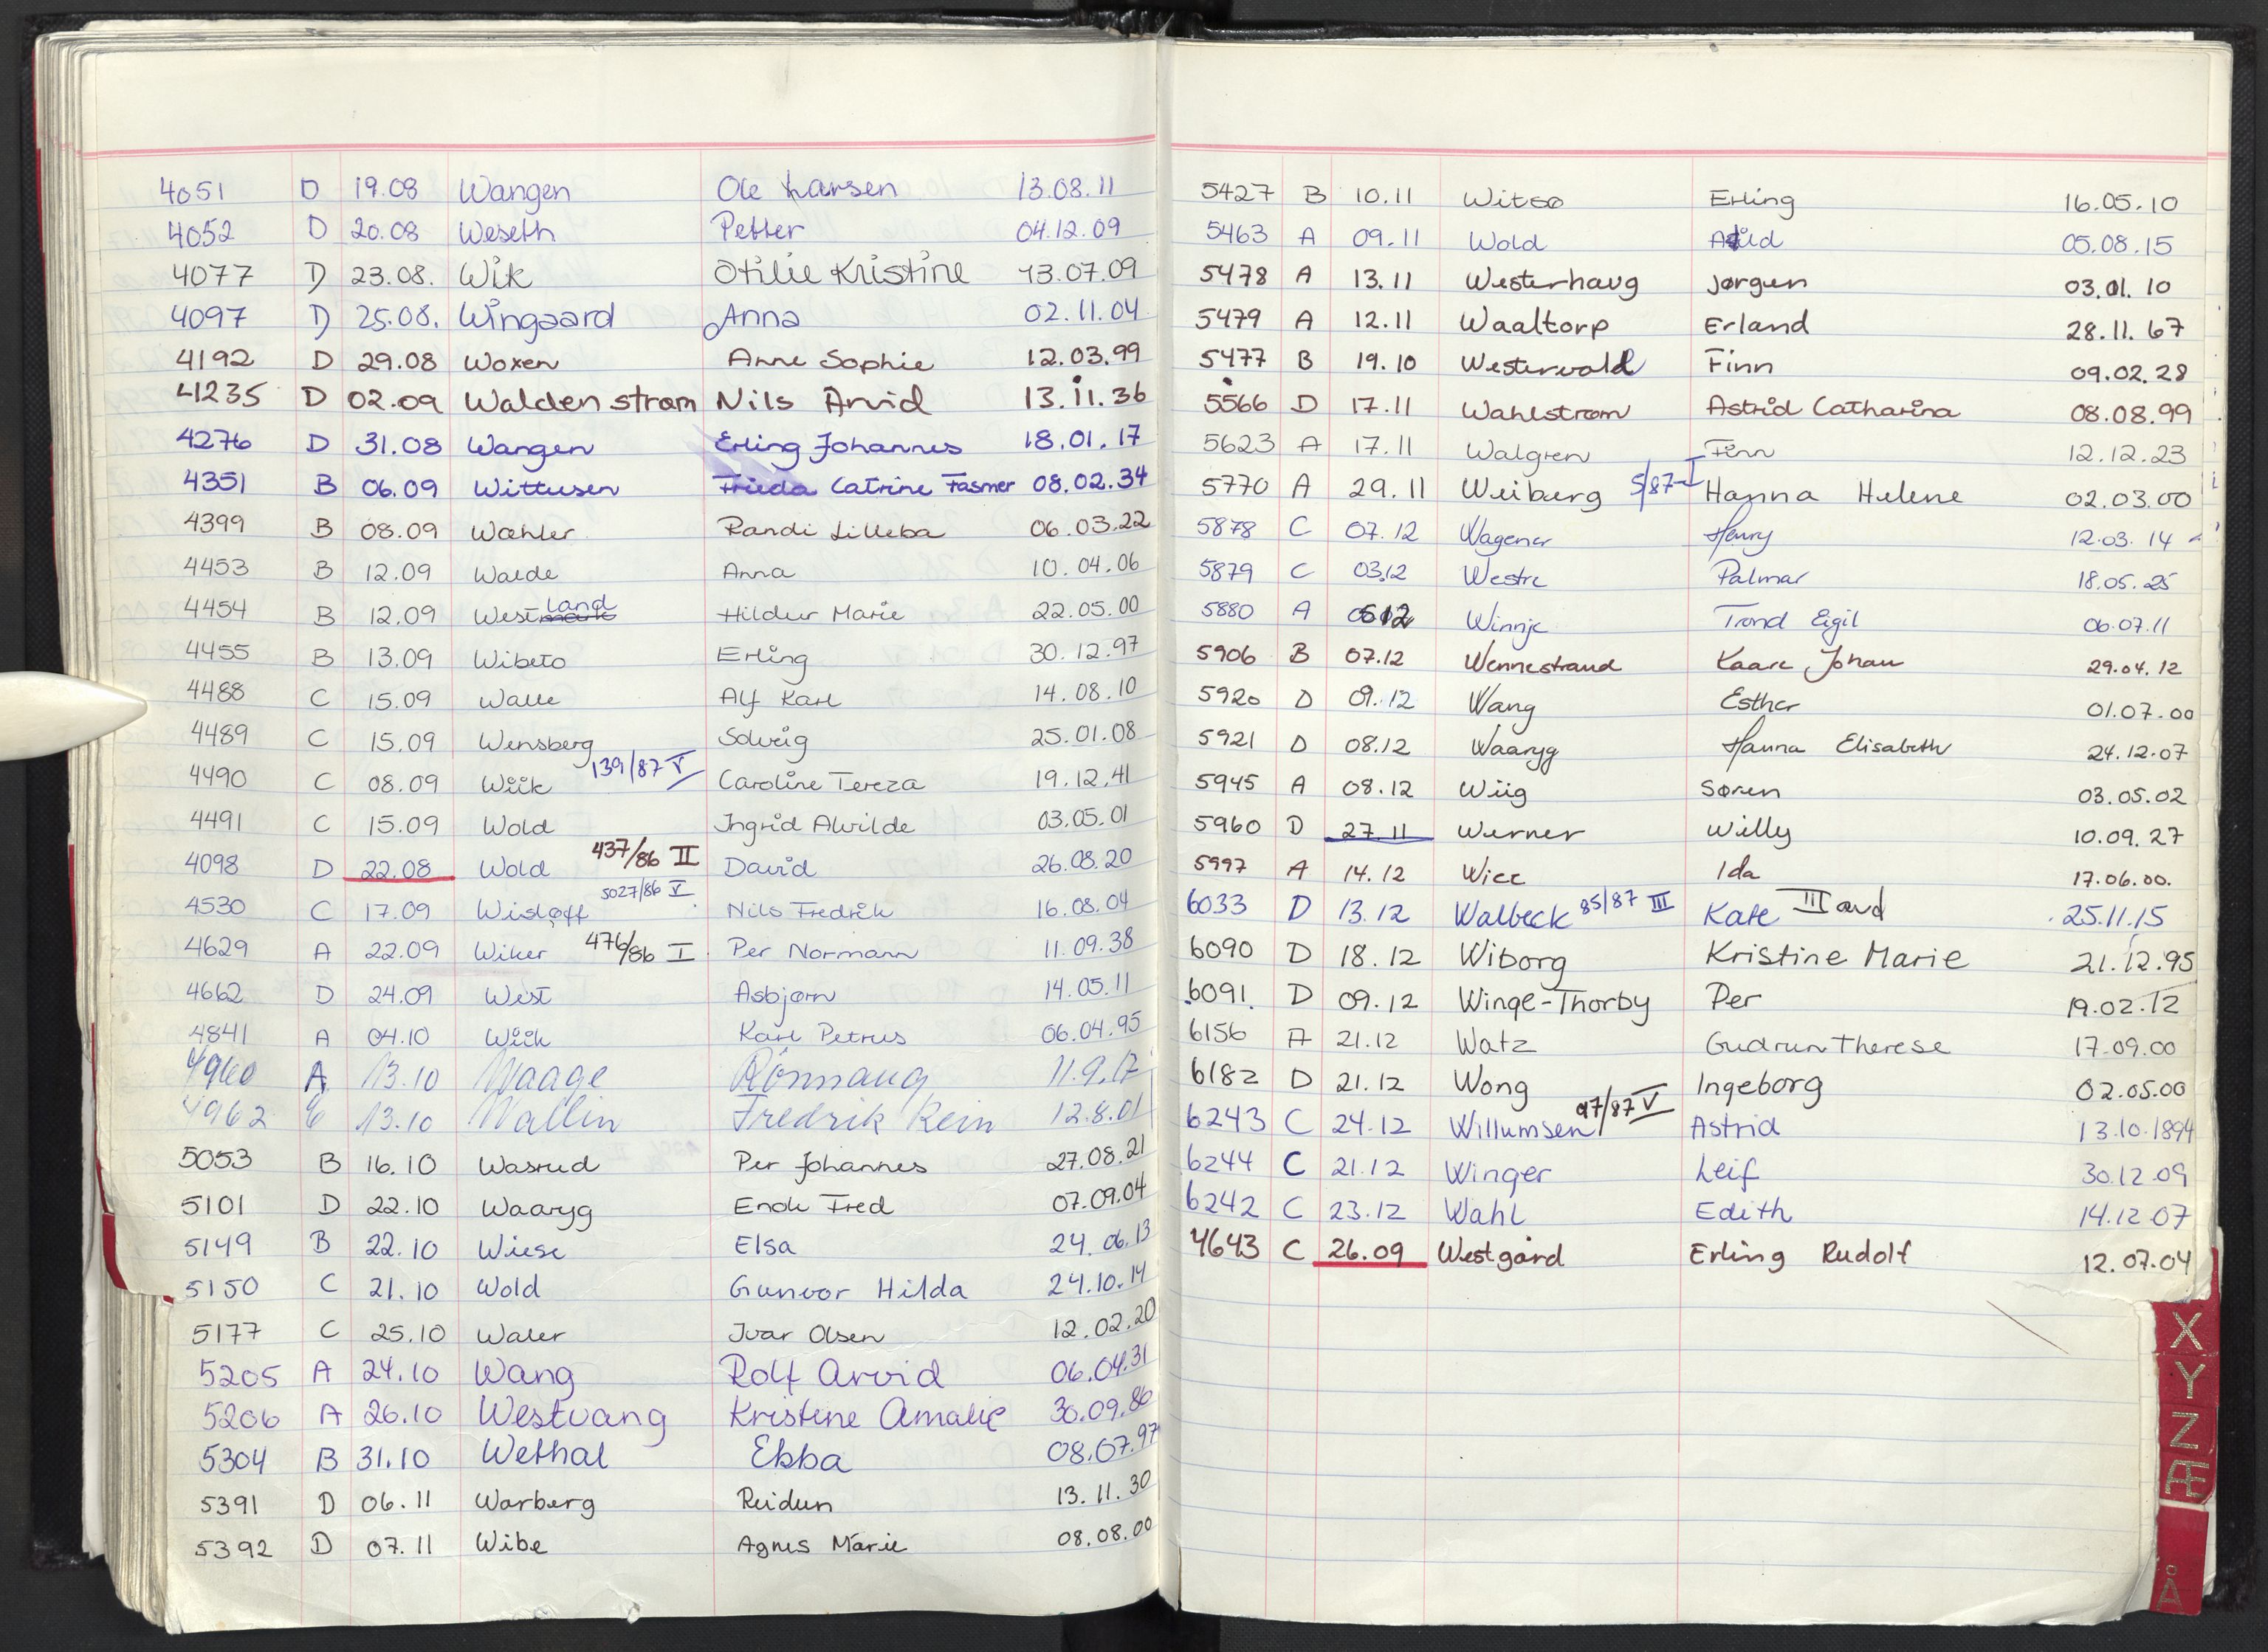 4051 D 19.08 Wangen Ole Larsen 13.08.11
4052 D 20.08 Weseth Petter 04.12.09
4077 D 23.08. Wik Otilie Kristine 13.07.09
4097 D 25.08. Wingaard Anna 02.11.04
4192 D 29.08 Woxen Anne Sophie 12.03.99
4235 D 02.09 Waldenstrøm Nils Arvid 13.11.36
4276 D 31.08 Wangen Erling Johannes 18.01.17
4351 B 06.09 Wittusen Frieda Catrine Fasmer 08.02.34
4399 B 08.09 Wæhler Randi Lilleba 06.03.22
4453 B 12.09 Walde Anna 10.04.06
4454 B 12.09 Westland Hildur Marie 22.05.00
4455 B 13.09 Wibeto Erling 30.12.97
4488 C 15.09 Walle Alf Karl 14.08.10
4489 C 15.09 Wensberg Solveig 25.01.08
4490 C 08.09 Wiik 139/87 V Caroline Tereza 19.12.41
4491 C 15.09 Wold Ingrid Alvilde 03.05.01
4098 D 22.08 Wold 437/86 II David 26.08.20
4530 C 17.09 Wisløff 5027/86 V Nils Fredrik 16.08.04
4629 A 22.09 Wiker 476/86 I Per Normann 11.09.38
4662 D 24.09 West Asbjørn 14.05.11
4841 A 04.10 Wiik Karl Petrus 06.04.95
4960 A 13.10 Waage Rønnaug 11.9.17
4962 C 13.10 Wallin Fredrik Rein 12.8.01
5053 B 16.10 Wasrud Per Johannes 27.08.21
5101 D 22.10 Waaryg Enok Fred 07.09.04
5149 B 22.10 Wiese Elsa 24.06.13
5150 C 21.10 Wold Gunvor Hilda 24.10.14
5177 C 25.10 Waler Ivar Olsen 12.02.20
5205 A 24.10 Wang Rolf Arvid 06.04.31
5206 A 26.10 Westvang Kristine Amalie 30.09.86
5304 B 31.10 Wethal Ebba 08.07.97
5391 D 06.11 Warberg Reidun 13.11.30
5392 D 07.11 Wibe Agnes Marie 08.08.00
5427 B 10.11 Witsø Erling 16.05.10
5463 A 09.11 Wold 05.08.15
5478 A 13.11 Westerhaug Jørgen 03.01.10
5479 A 12.11 Waaltorp Erland 28.11.67
5477 B 19.10 Westervold Finn 09.02.28
5566 D 17.11 Wahlstrøm Astrid Catharina 08.08.99
5623 A 17.11 Walgren Finn 12.12.23
5770 A 29.11 Weiberg 5/87-I Hanna Helene 02.03.00
5878 C 07.12 Wagener Henry 12.03.14
5879 C 03.12 Westre Palmar 18.05.25
5880 A 0612 Winnje Trond Eigil 06.07.11
5906 B 07.12 Wennestrand Kaare Johan 29.04.12
5920 D 09.12 Wang Esther 01.07.00
5921 D 08.12 Waaryg Hanna Elisabeth 24.12.07
5945 A 08.12 Wiig Søren 03.05.02
5960 D 27 11 Werner Willy 10.09.27
5997 A 14.12 Wiee Ida 17.06.00.
6033 D 13.12 Walbeck 85/87 III Kate III avd 25.11.15
6090 D 18.12 Wiborg Kristine Marie 21.12.95
6091. D 09.12 Winge-Thorby Per 19.02.12
6156 A 21.12 Watz Gudrun Therese 17.09.00
6182 D 21.12 Wong Ingeborg 02.05.00
6243 C 24.12 Willumsen 97/87 V Astrid 13.10.1894
6244 C 21.12 Winger Leif 30.12.09
6242 C 23.12 Wahl Edith 14.12.07
4643 C 26.09 Westgård Erling Rudolf 12.07.04
X
Y
Z
Æ
Å